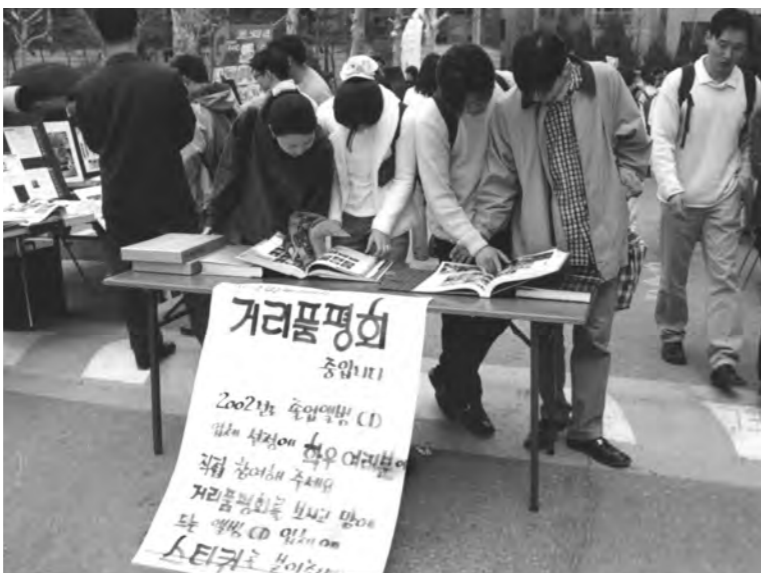 거리품평회
중입니다
2002년도 졸업앨범 CD
업체 선정에 학우 여러분이
직접 참여해 주세요
거리품평회를 보시고 맘에
드는 앨범 CD 업체에
스티커를